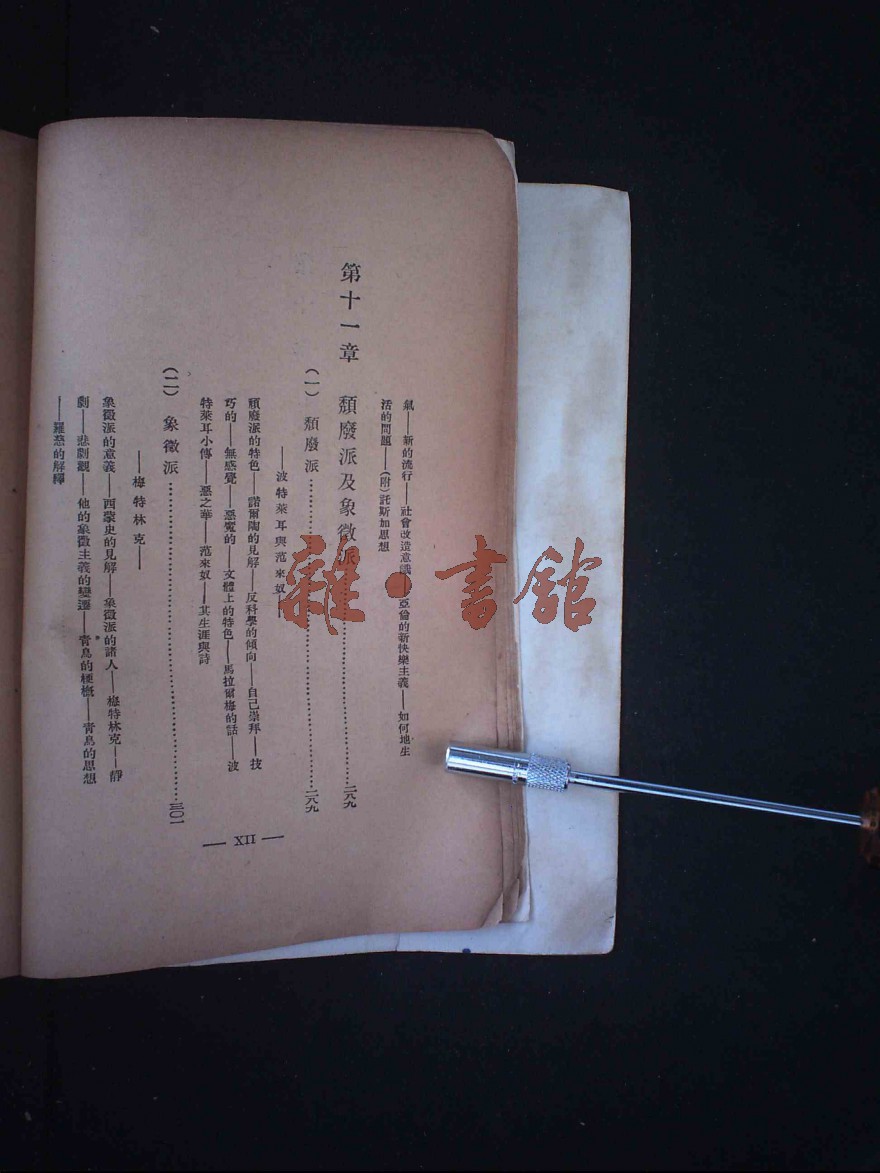 氣——新的流行——社會改造意識——亞倫的新快樂主義——如何地生
活的問題——(附)託斯加思想
第十一章 頹廢派及象徵派…………二八九
(一) 頹廢派…………二八九
——波特萊耳與范來奴——
頹廢派的特色——諾爾陶的見解——反科學的傾向——自己崇拜——技
巧的——無感覺——惡魔的——文體上的特色——馬拉爾梅的話——波
特萊耳小傳——惡之華——范來奴——其生涯與詩
(二) 象徵派…………三〇一
——梅特林克——
象徵派的意義——西蒙史的見解——象徵派的諸人——梅特林克——靜
劇——悲劇觀——他的象徵主義的變遷——青鳥的梗槪——青鳥的思想
——羅慈的解釋
— XII —
雜·書館